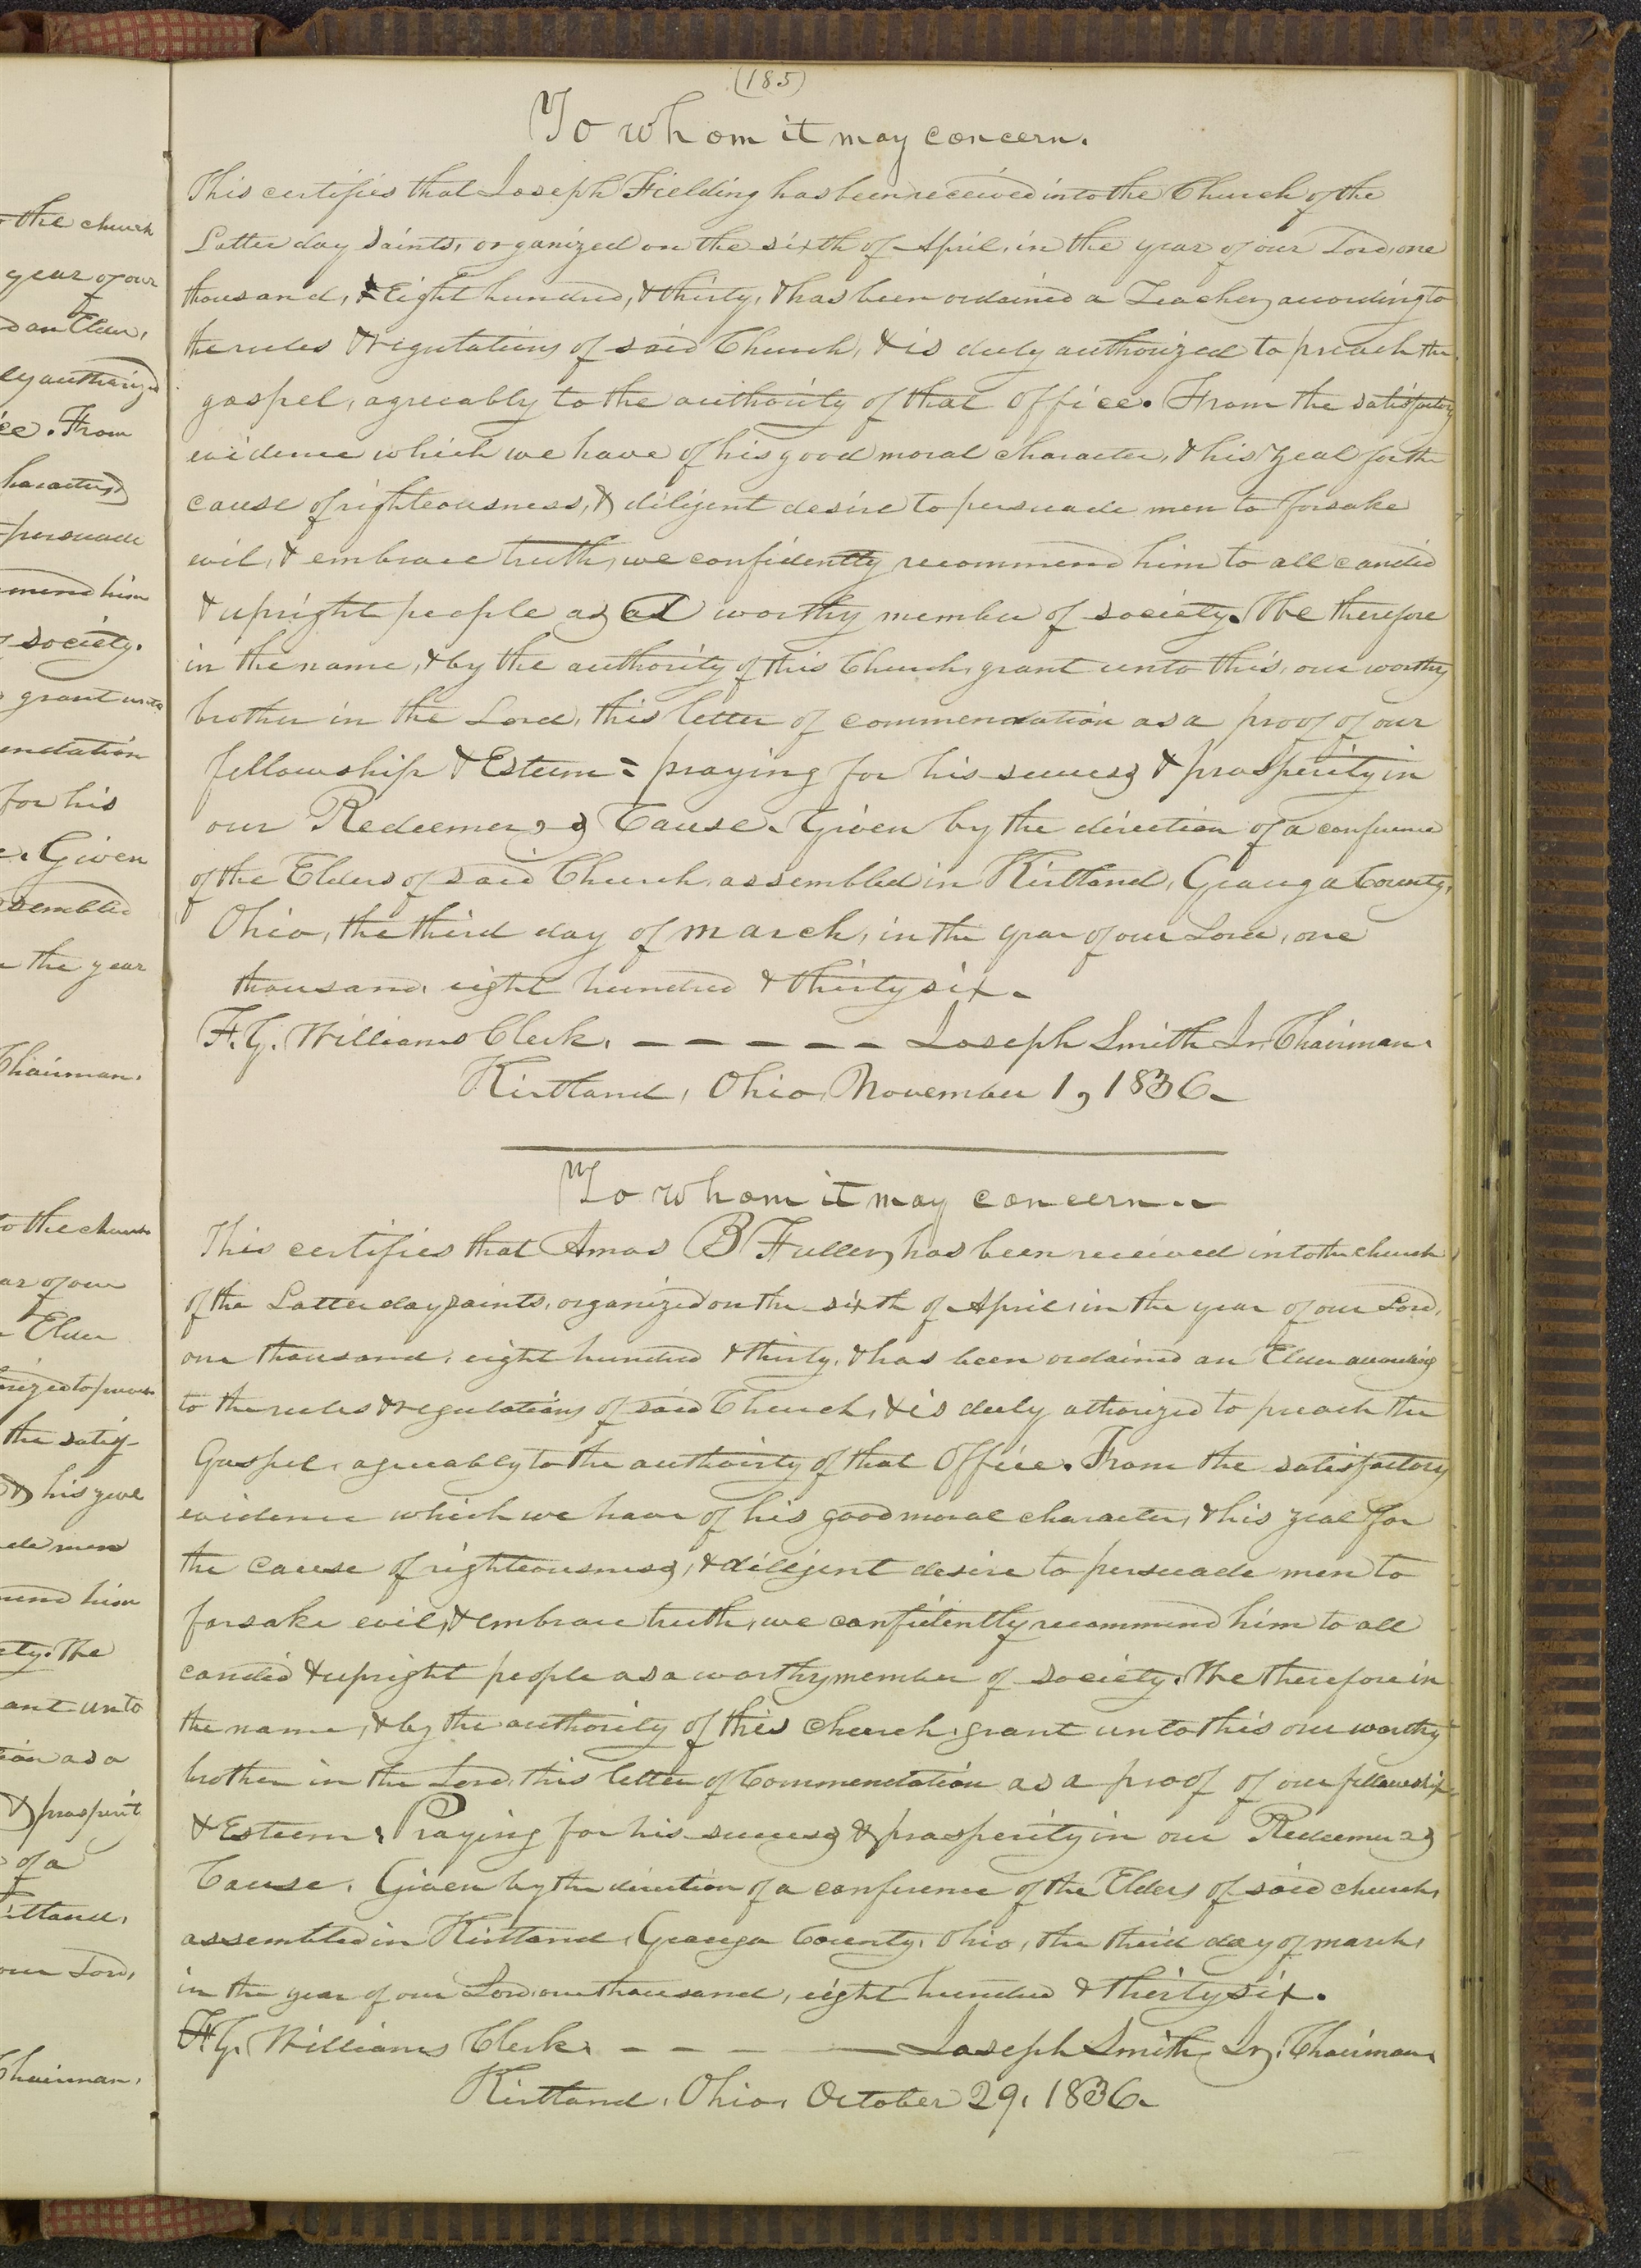 (185)
To whom it may concern.
This certifies that Joseph Fielding has been received into the Church of the
Latter day Saints, organized on the sixth of April, in the year of our Lord, one
thousand, & Eight hundred, & thirty, & has been ordained a Teacher, according to
the rules & regulations of said Church, & is duly authorized to preach the
gospel, agreeably to the authority of that office. From the satisfactory
evidence which we have of his good moral character, & his zeal for the
cause of righteousness, & diligent desire to persuade men to forsake
evil, & embrace truth, we confidently recommend him to all candid
& upright people as a worthy member of society. We therefore
in the name, & by the authority of this Church, grant unto this, our worthy
brother in the Lord, this letter of commendation as a proof of our
fellowship & Esteem = praying for his success & prosperity in
our Redeemer,s Cause. Given by the direction of a conference
of the Elders of said Church, assembled in Kirtland, Geauga County,
Ohio, the third day of march, in the year of our Lord, one
thousand, eight hundred & thirty six.
F. G. Williams Clerk. – – – – – Joseph Smith Jr. Chairman.
Kirtland, Ohio, November 1, 1836.
To whom it may concern..
This certifies that Amos B Fuller, has been received into the church
of the Latter day saints, organized on the sixth of April, in the year of our Lord,
one thousand, eight hundred & thirty, & has been ordained an Elder according
to the rules & regulations of said Church, & is duly athorized to preach the
Gospel, agreeably to the authority of that Office. From the satisfactory
evidence which we have of his good moral character, & his zeal for
the cause of righteousness, & diligent desire to persuade men to
forsake evil, & embrace truth, we confidently recommend him to all
candid & upright people as a worthy member of society. We therefore in
the name, & by the authority of this church, grant unto this our worthy
brother in the Lord, this letter of Commendation as a proof of our fellowship
& Esteem, Praying for his success & prosperity in our Redeemer,s
Cause. Given by the direction of a conference of the Elders of said church,
assembled in Kirtland, Geauga County, Ohio, the third day of march,
in the year of our Lord, one thousand, eight hundred & thirty six.
F. G. Williams Clerk. – – – — Joseph Smith, Jr, Chairman.
Kirtland, Ohio, October 29, 1836.